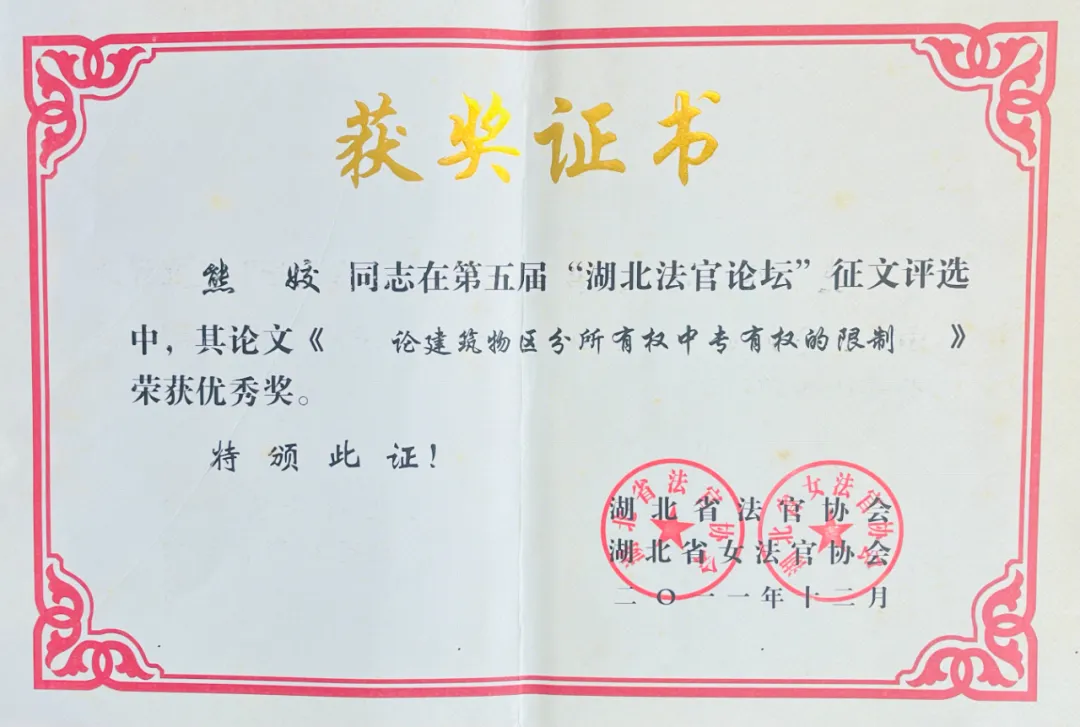 获奖证书
熊 姣 同志在第五届“湖北法官论坛”征文评选
中，其论文《 论建筑物区分所有权中专有权的限制 》
荣获优秀奖。
特 颁 此 证！
湖北省法官协会
湖北省女法官协会
湖北省法官协会
湖北省女法官协会
二〇一一年十二月